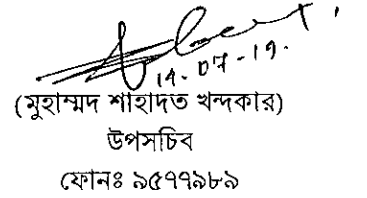 14-07-19.
(মুহাম্মদ শাহাদত খন্দকার)
উপসচিব
ফোনঃ ৯৫৭৭৯৮৯